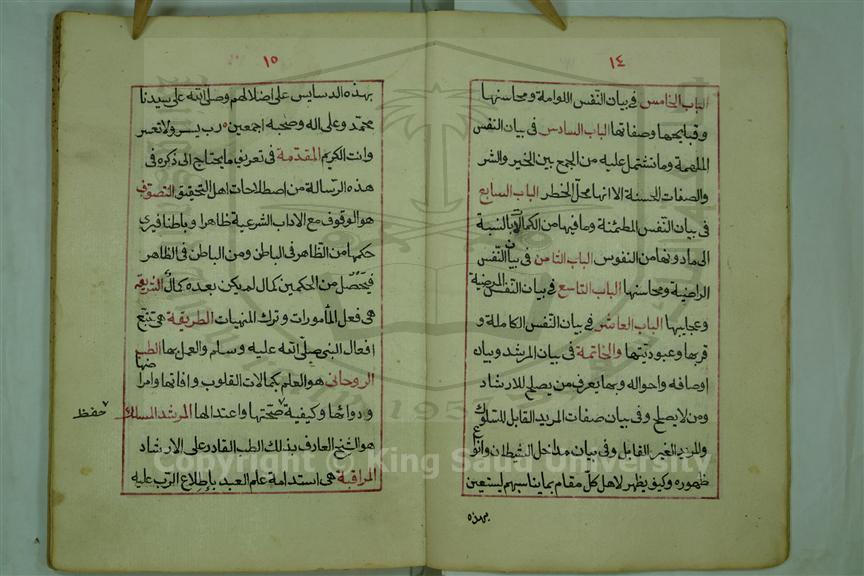 ١٤
الباب الخامس في بيان النفس اللوامة ومحاسنها
وقبايحها وصفاتها الباب السادس في بيان النفس
الملهمة وما تشتمل عليه من الجمع بين الخير والشر
والصفات الحسنة الا انها محل الخطر الباب السابع
في بيان النفس المطمئنة وما فيها من الكمالات بالنسبة
الى ما دونها من النفوس الباب الثامن في بيان النفس
الراضية ومحاسنها الباب التاسع في بيان النفس المرضية
وعجايبها الباب العاشر في بيان النفس الكاملة و
قربها وعبوديتها والخاتمة في بيان المرشد وبيان
اوصافه واحواله وبما يعرف من يصلح للارشاد
ومن لا يصلح وفي بيان صفات المريد القابل للسلوك
والمريد الغير القابل وفي بيان مداخل الشيطان وانواع
ظهوره وكيف يظهر لاهل كل مقام بما يناسبهم ليستعين
بهذه
١٥
بهذه الدسايس على اضلالهم وصلى الله على سيدنا
محمد وعلى اله وصحبه اجمعين رب يسر ولا تعسر
وانت الكريم المقدمة في تعريف ما يحتاج الى ذكره في
هذه الرسالة من اصطلاحات اهل التحقيق التصوف
هو الوقوف مع الاداب الشرعية ظاهرا وباطنا فيرى
حكمها من الظاهر في الباطن ومن الباطن في الظاهر
فيحصل من الحكمين كمال لم يكن بعده كمال الشريعة
هي فعل المأمورات وترك المنهيات الطريقة هي تتبع
افعال النبي صلى الله عليه وسلم والعمل بها الطب
الروحاني هو العلم بكمالات القلوب وافاتها وامراضها
ودوائها وكيفية صحتها واعتدالها المرشد المسلك
حفظ
هو الشيخ العارف بذلك الطب القادر على الارشاد
المراقبة هي استدامة علم العبد باطلاع الرب عليه
Copyright © King Saud University
1957